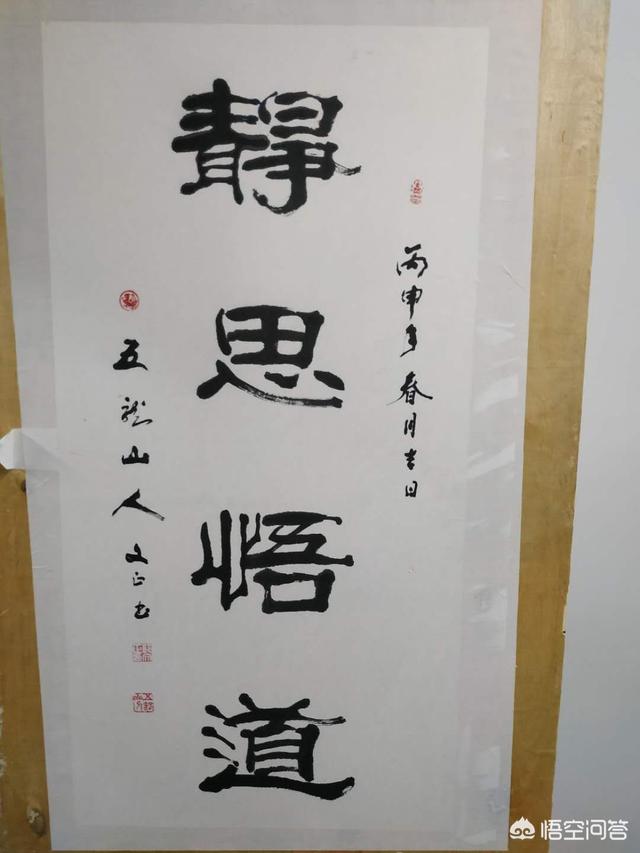 丙申年春月吉日
靜思悟道
五龍山人文正书
悟空问答